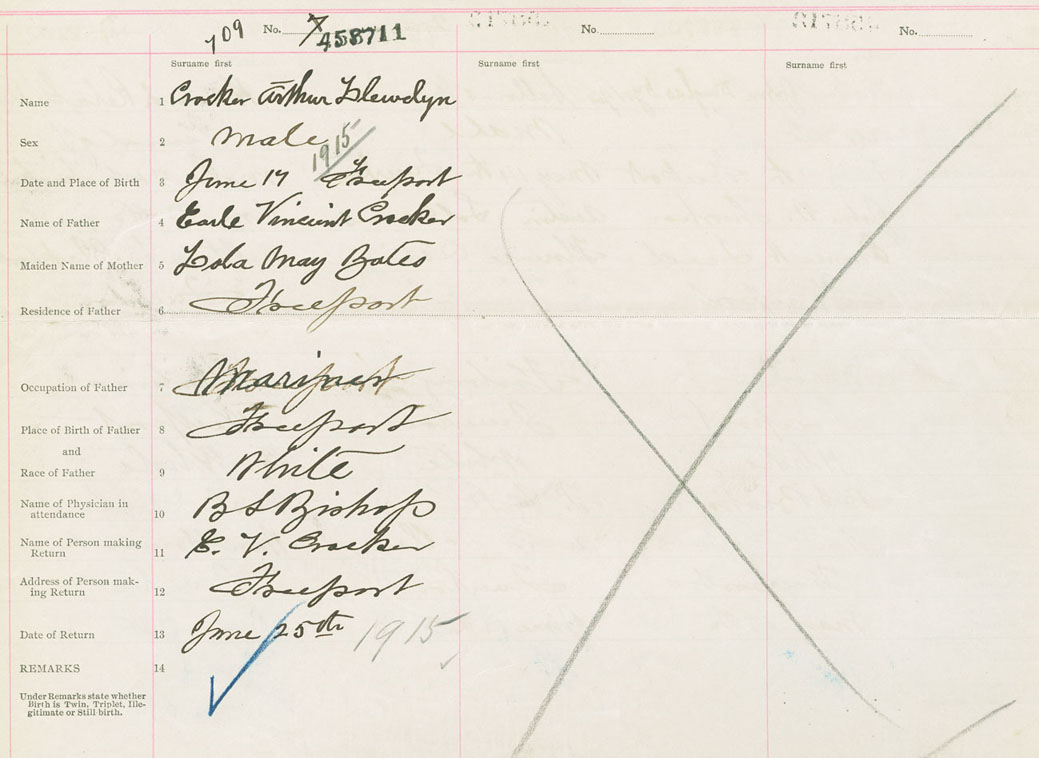 109 No. 7 458711 No. No.
Surname first Surname first Surname first
Name 1 Crocker Arthur Llewelyn
Sex 2 male
1915
Date and Place of Birth 3 June 17 Freeport
Name of Father 4 Earle Vincent Crocker
Maiden Name of Mother 5 Lola May Bates
Residence of Father 6 Freeport
Occupation of Father 7 Mariner
Place of Birth of Father 8 Freeport
and
Race of Father 9 White
Name of Physician in
attendance 10 B S Bishop
Name of Person making
Return 11 E. V. Crocker
Address of Person mak-
ing Return 12 Freeport
Date of Return 13 June 25th 1915
REMARKS 14
Under Remarks state whether
Birth is Twin, Triplet, Ille-
gitimate or Still birth.